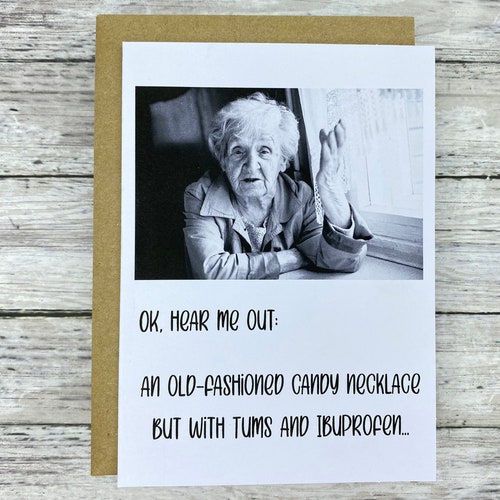 OK, HEAR ME OUT:
AN OLD-FASHIONED CANDY NECKLACE
BUT WITH TUMS AND IBUPROFEN...